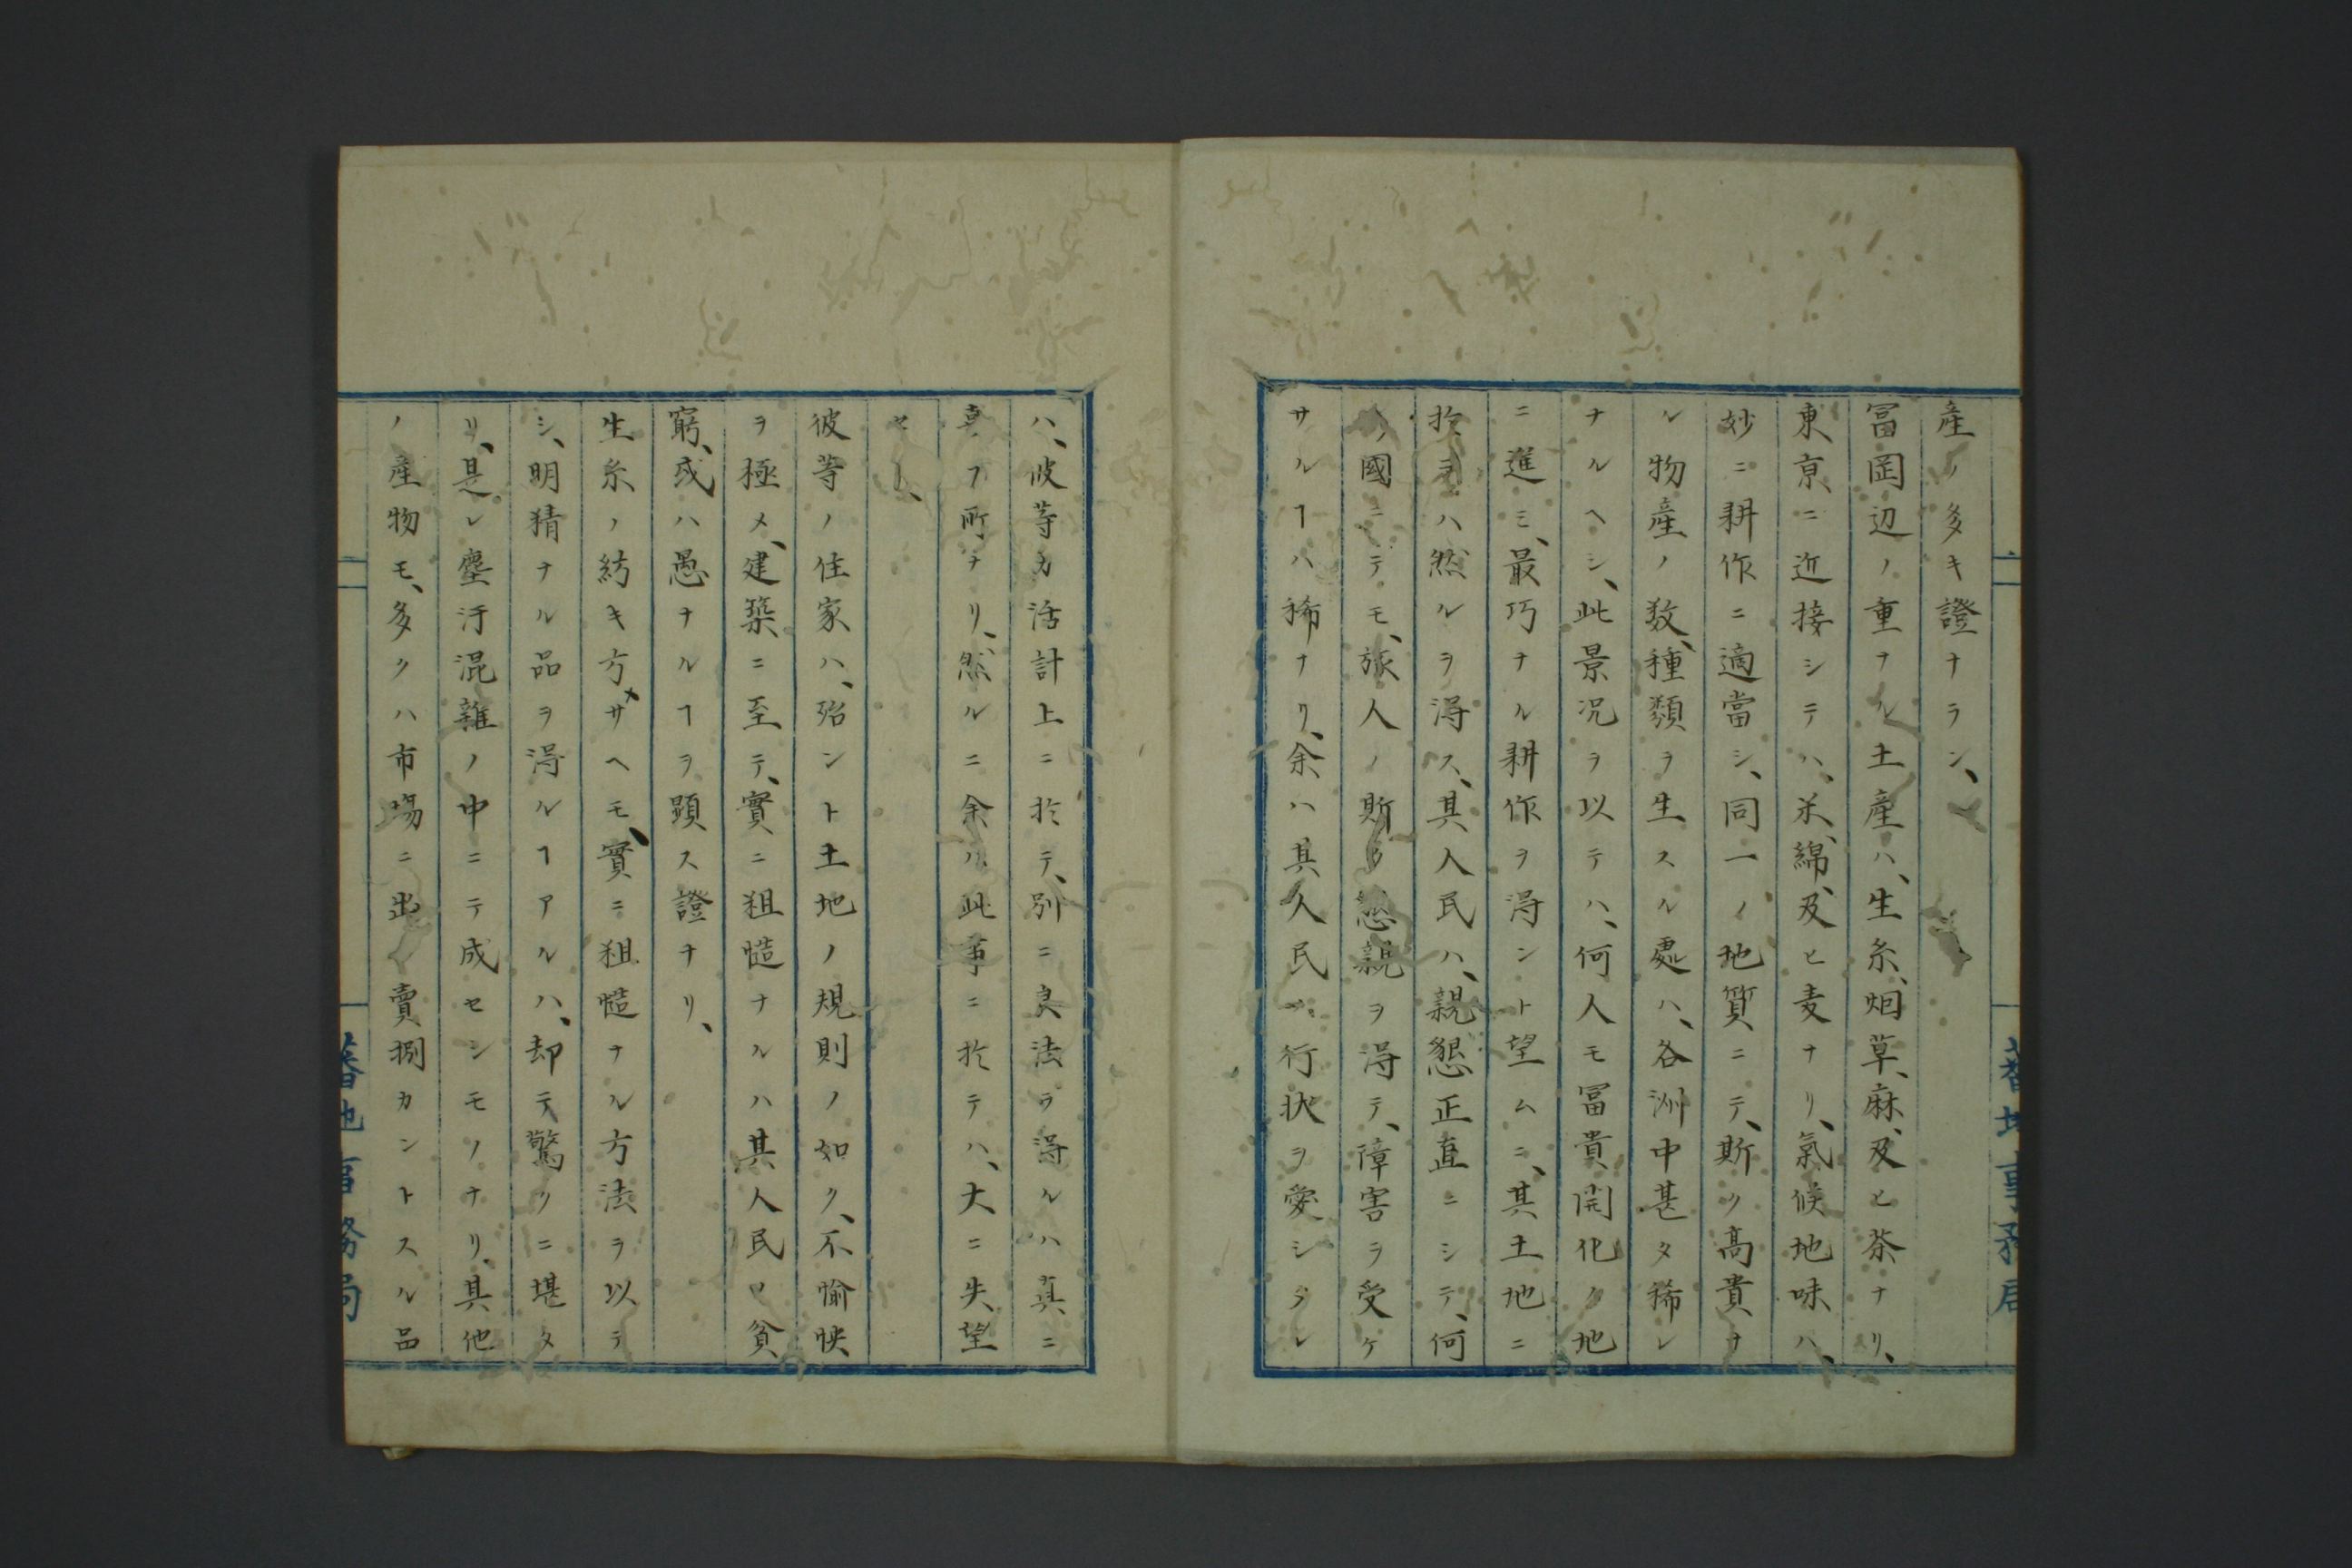 産ノ多キ證ナラン、
冨岡辺ノ重ナル土産ハ、生糸、烟草、麻、及ヒ茶ナリ、
東亰ニ近接シテハ、米、綿、及ヒ麦ナリ、氣候地味ハ、
妙ニ耕作ニ適當シ、同一ノ地質ニテ、斯ク高貴ナ
ル物産ノ数、種類ヲ生スル處ハ、各洲中甚タ稀レ
ナルヘシ、此景况ヲ以テハ、何人モ冨貴開化ノ地
ニ進ミ、最巧ナル耕作ヲ淂ント望ムニ、其土地ニ
於テハ然ルヲ淂ス、其人民ハ、親懇正直ニシテ、何
ノ國ニテモ、旅人ノ斯ク懇親ヲ淂テ、障害ヲ受ケ
サルヿハ稀ナリ、余ハ其人民ノ行状ヲ愛シタレ
ハ、彼等カ活計上ニ於テ、別ニ良法ヲ淂ルハ真ニ
喜フ所ナリ、然ルニ余ハ此事ニ於テハ、大ニ失望
セリ、
彼等ノ住家ハ、殆ント土地ノ規則ノ如ク、不愉怏
ヲ極メ、建築ニ至テ、實ニ粗糙ナルハ其人民ノ貧
窮、或ハ愚ナルヿヲ顕ス證ナリ、
生糸ノ紡キ方サヘモ、實ニ粗糙ナル方法ヲ以テ
シ、明精ナル品ヲ淂ルヿアルハ、却テ驚クニ堪タ
リ、是レ塵汙混雑ノ中ニテ成セシモノナリ、其他
ノ産物モ、多クハ市塲ニ出シ賣捌カントスル品
蕃地事務局
蕃地事務局